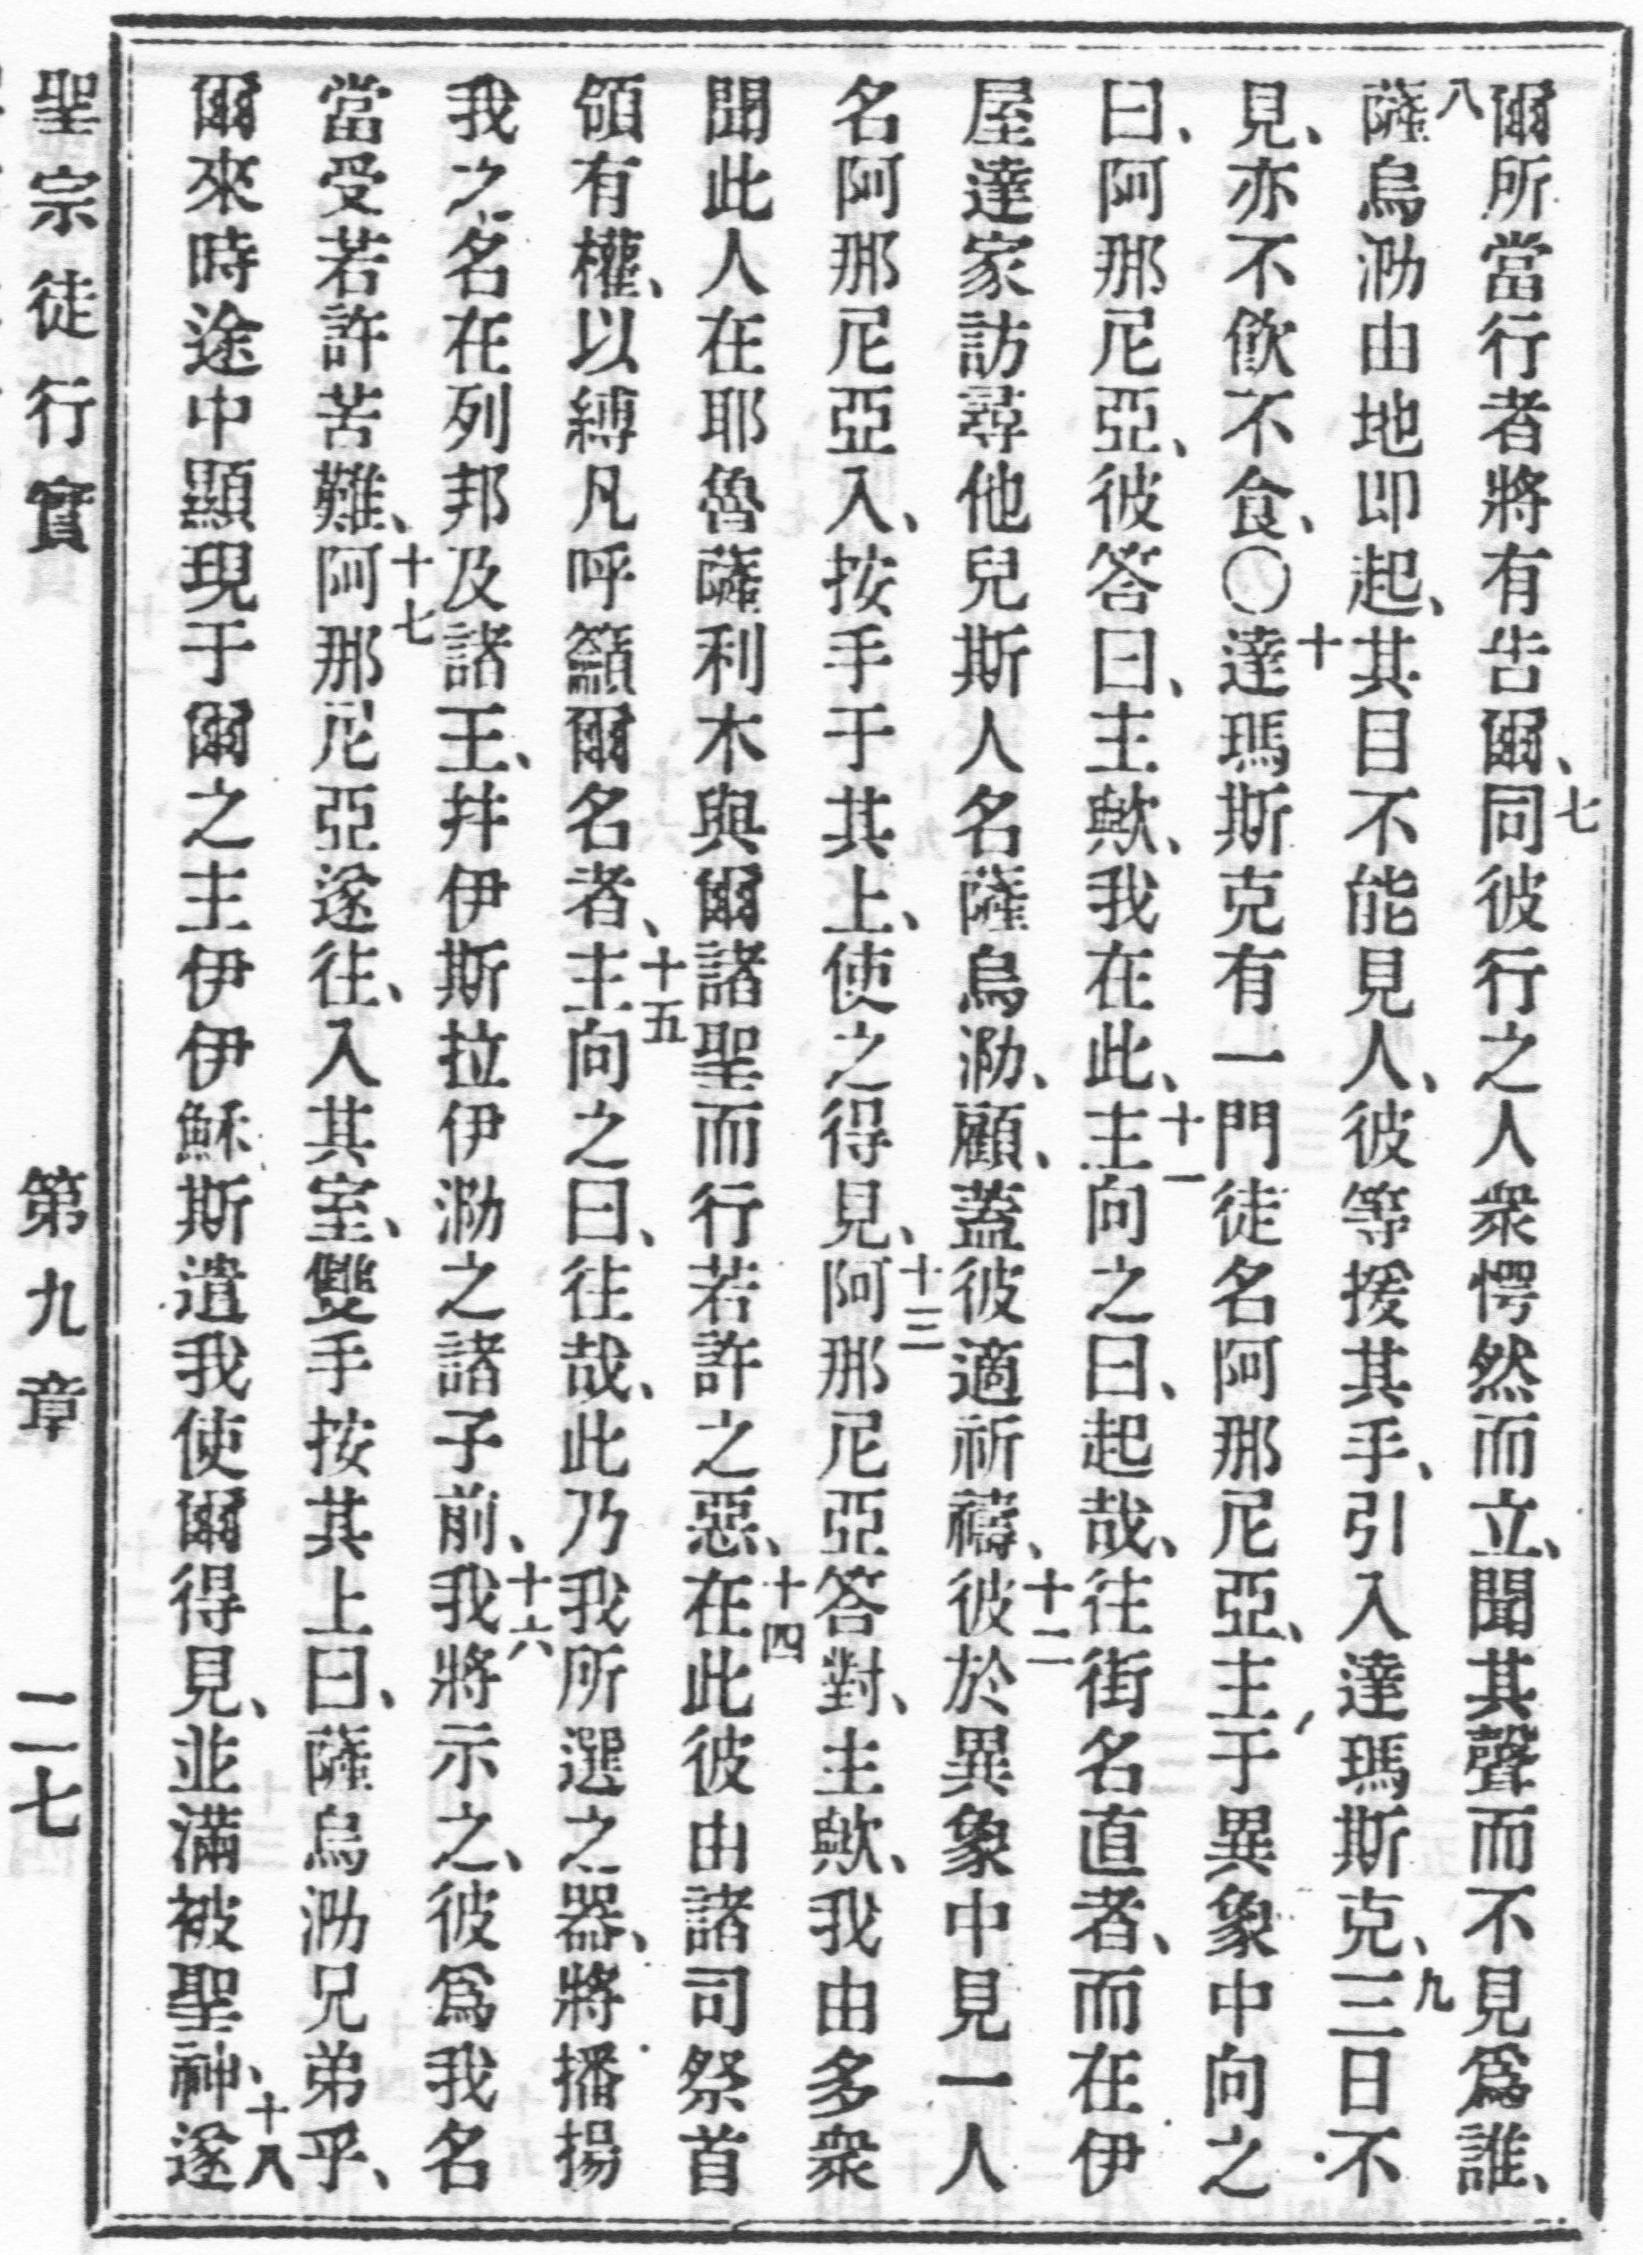 爾所當行者將有告爾、七同彼行之人衆愕然而立、聞其聲而不見爲誰、
八薩烏泐由地即起、其目不能見人、彼等援其手、引入達瑪斯克、九三日不
見、亦不飲不食、〇十達瑪斯克有一門徒名阿那尼亞、主于異象中向之
曰、阿那尼亞、彼答曰、主歟、我在此、十一主向之曰、起哉、往街名直者、而在伊
屋達家訪尋他兒斯人名薩烏泐、顧、蓋彼適祈禱、十二彼於異象中見一人
名阿那尼亞入、按手于其上、使之得見、十三阿那尼亞答對、主歟、我由多衆
聞此人在耶魯薩利木與爾諸聖而行若許之惡、十四在此彼由諸司祭首
領有權、以縛凡呼籲爾名者、十五主向之曰、往哉、此乃我所選之器、將播揚
我之名在列邦及諸王、幷伊斯拉伊泐之諸子前、十六我將示之、彼爲我名
當受若許苦難、十七阿那尼亞遂往、入其室、雙手按其上曰、薩烏泐兄弟乎、
爾來時途中顯現于爾之主伊伊穌斯遣我使爾得見、並滿被聖神、十八遂
聖宗徒行實　第九章　二一七